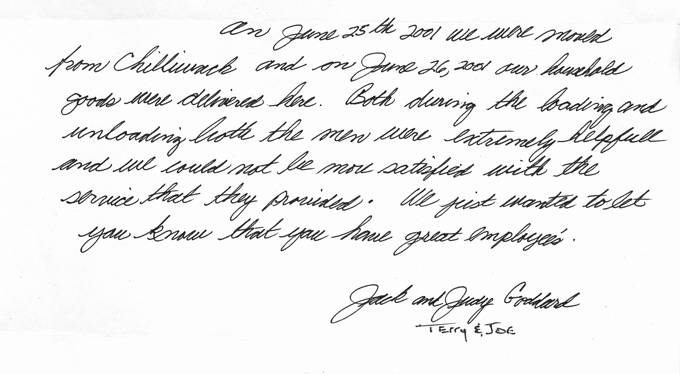 On June 25th 2001 we were moved
from Chilliwack and on June 26, 2001 our household
goods were delivered here. Both during the loading and
unloading both the men were extremely helpfull
and we could not be more satisfied with the
service that they provided. We just wanted to let
you know that you have great employee's.
Jack and Judy Goddard
Terry & Joe